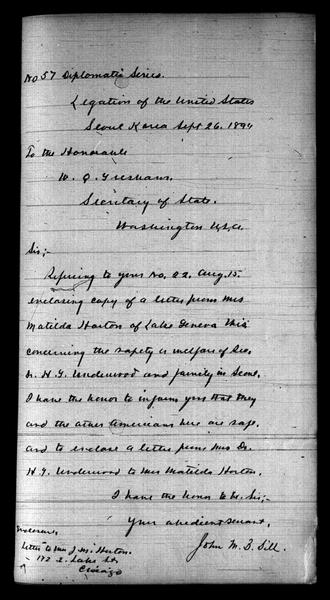 No. 57 Diplomatic Series.
Legation of the United States
Seoul Korea Sept 26. 1894
To the Honorable
W. Q. Gresham.
Secretary of State.
Washington U.S.A.
Sir;-
Refering to yours No. 22. Aug. 15.
enclosing copy of a letter from Mrs
Matilda Horton of Lake Geneva Wis
concerning the safety & welfare of Dr.
H. G. Underwood and family in Seoul.
I have the honor to inform you that they
and the other Americans here are safe.
and to enclose a letter from Mrs Dr.
H. G. Underwood to Mrs Matilda Horton.
I have the honor to be, Sir;-
Your obedient servant,
John M. B. Sill.
Enclosure,
Letter to Mrs J. M. Horton.
Lake St.
Chicago